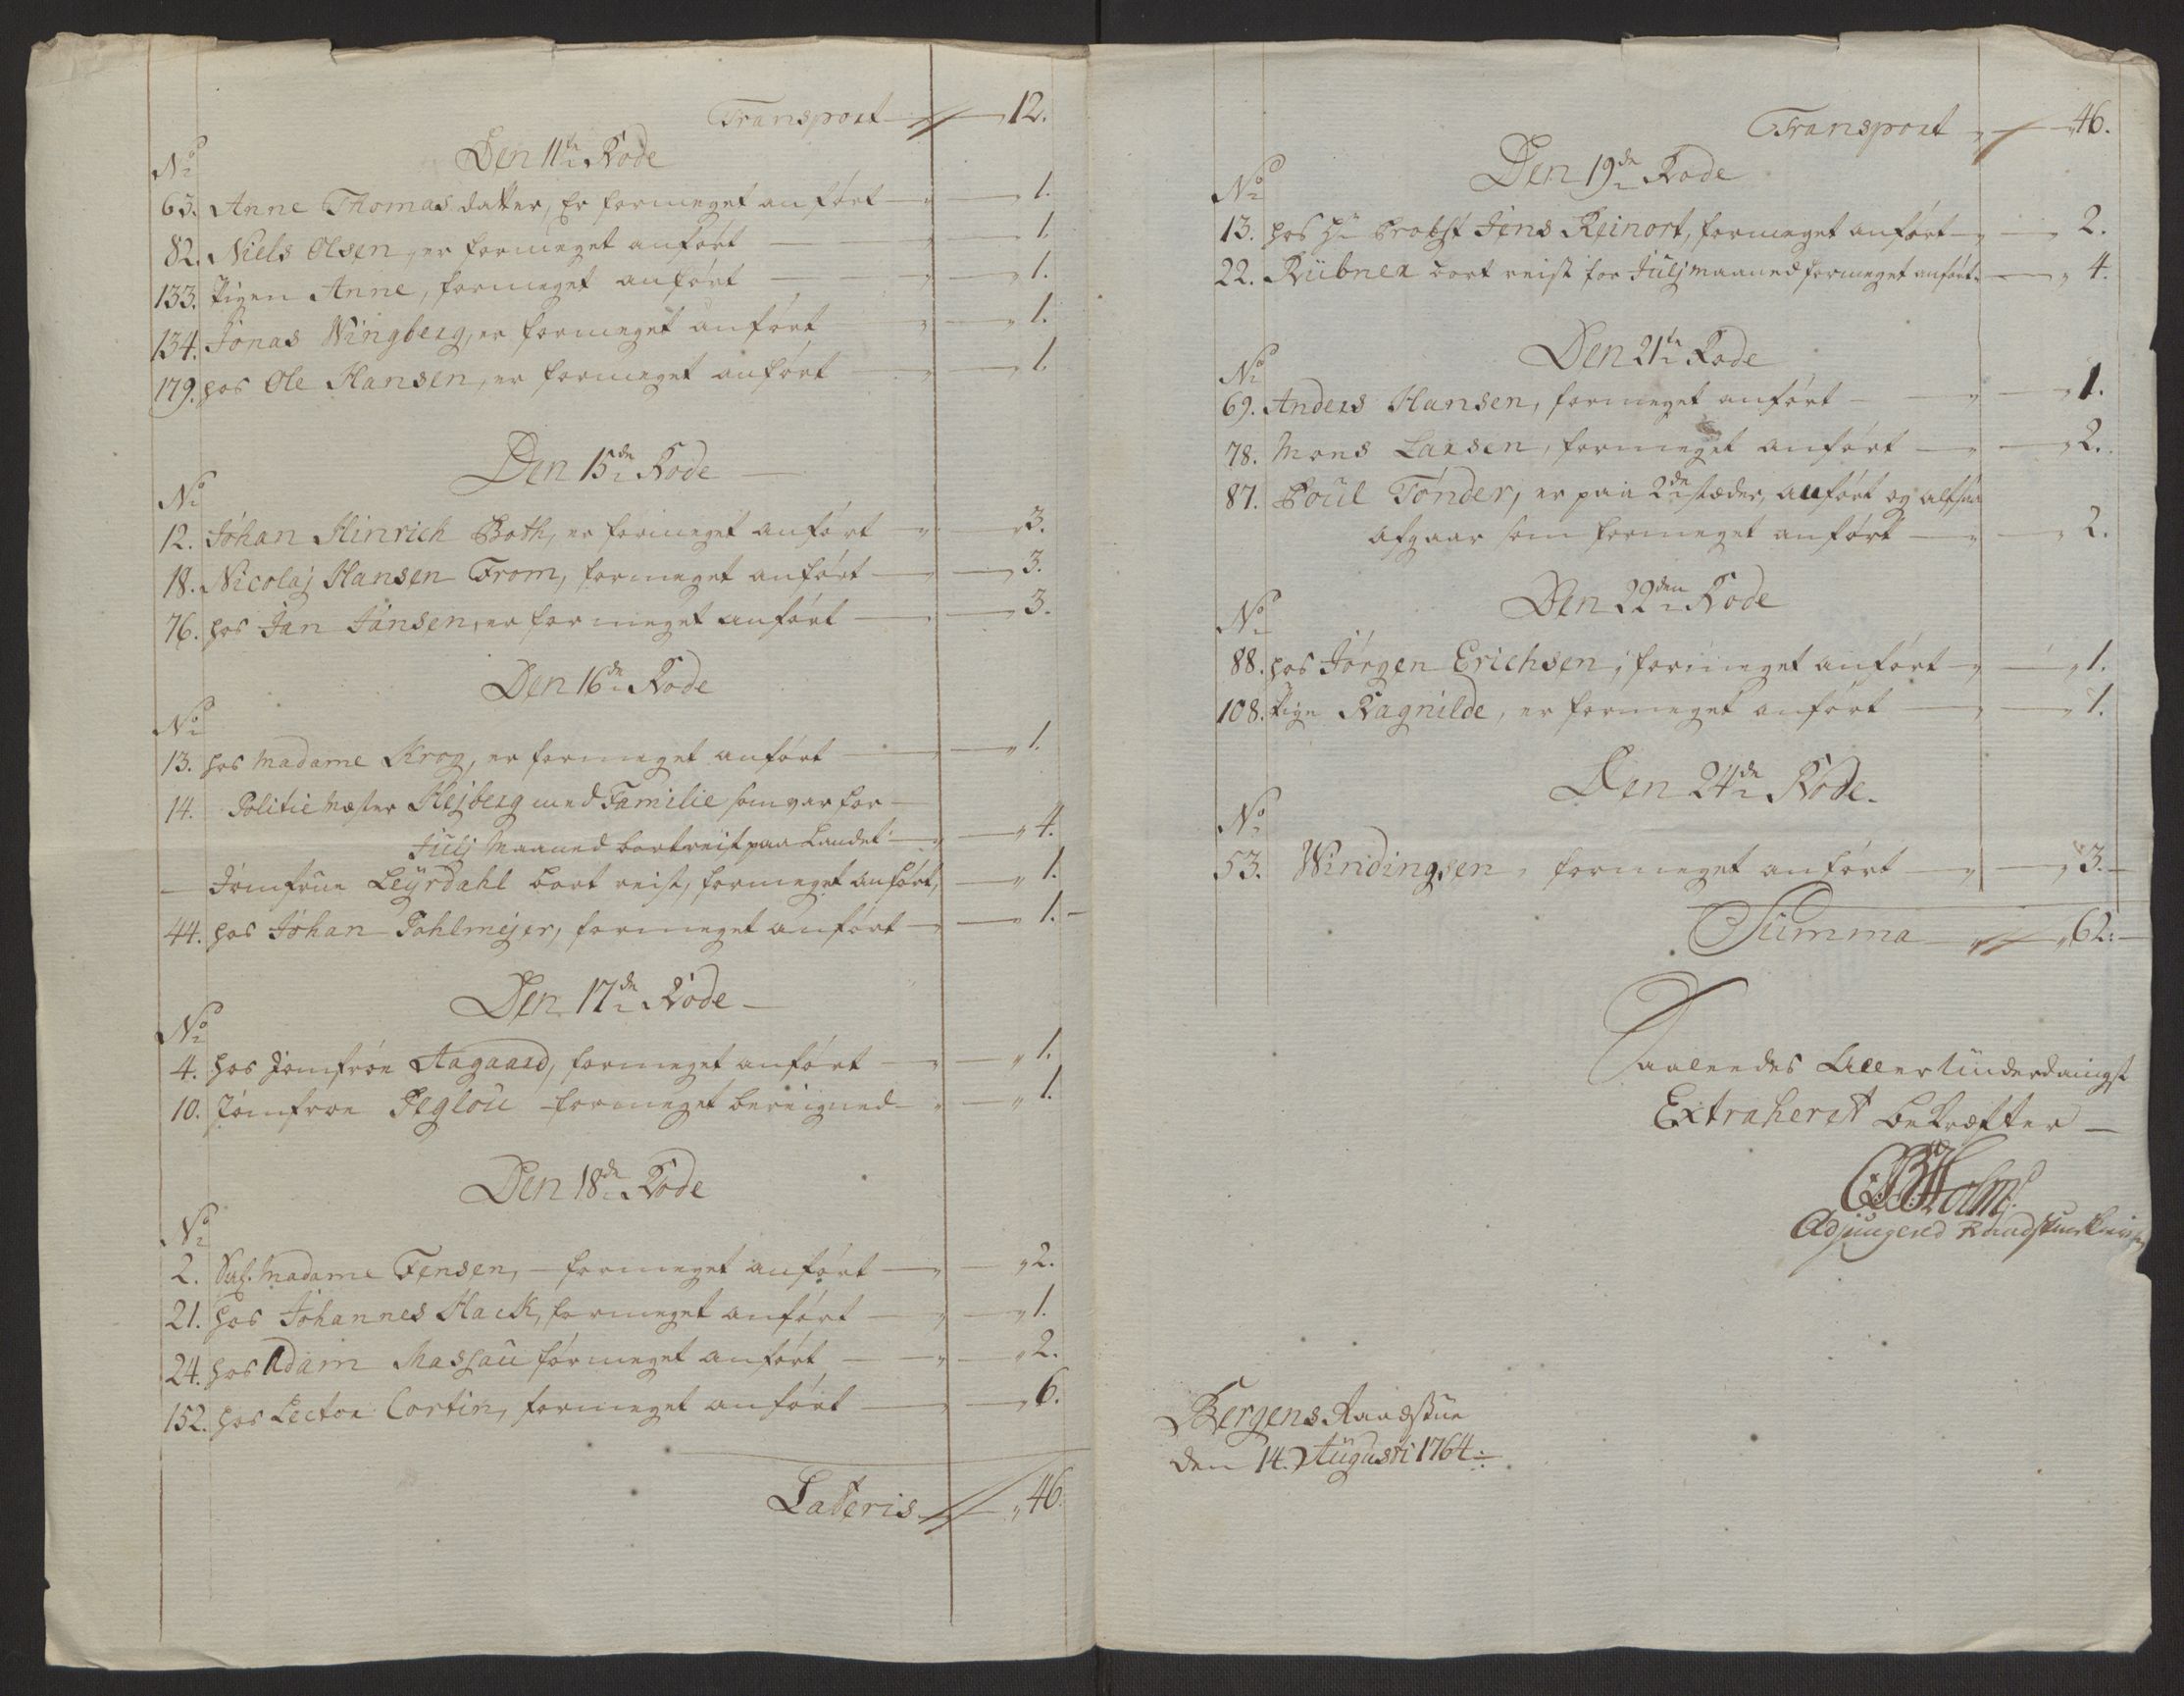 Transport 12.
Den 11te Rode
No
63. Anne Thomas datter, Er formeget anført 1.
82. Niels Olsen, er formeget anført 1.
133. Pigen Anne, formeget anført 1.
134. Jonas Wingberg, er formeget anført 1.
179. hos Ole Hansen, er formeget anført 1.
Den 15de Rode
No
12. Johan Hinrich Both, er formeget anført 3.
18. Nicolaj Hansen From, formeget anført 3.
76. hos Jan Jansen, er formeget anført 3.
Den 16de Rode
No
13. hos Madame Krog, er formeget anført 1.
14. Politie Mester Hejberg med Familie som var for
Julj Maaned bortreist paa Landet 4.
Jomfrue Leÿrdahl bort reist, formeget anført, 1.
44. hos Johan Pohlmejer, formeget anført 1.
Den 17de Rode
No
4. hos Jomfroe Aagaard, formeget anført 1.
10. Jomfroe Teglou formeget bereigned 1.
Den 18de Rode
No
2. Madame Fensen, formeget anført 2.
21. hos Johannes Hack, formeget anført 1.
24. hos Adam Massau formeget anført 2.
152. hos Lector Cortin, formeget anført 6.
Lateris 46
Transport 46.
Den 19de Rode
No
13. hos Hr Probst Jens Reinort, formeget anført 2.
22. Kübner bort reist for Julj maaned formeget anført 4.
Den 21te Rode
No
69. Anders Hansen, formeget anført 1.
78. Mons Larsen, formeget anført 2.
87. Poul Tönder, er paa 2de stæder, anført og altsaa
afgaar som formeget anført 2.
Den 22den Rode
No
88. hos Jörgen Erichsen, formeget anført 1.
108. Pige Ragnilde, er formeget anført 1.
Den 24de Rode.
No
53. Windingsen, formeget anført 3.
Summa 62.
Saaledes Allerunderdanigst
Extraheret bekræfter
Holm
Adjungered Raadstueskriver
Bergens Raadstue
den 14. Augusti 1764.